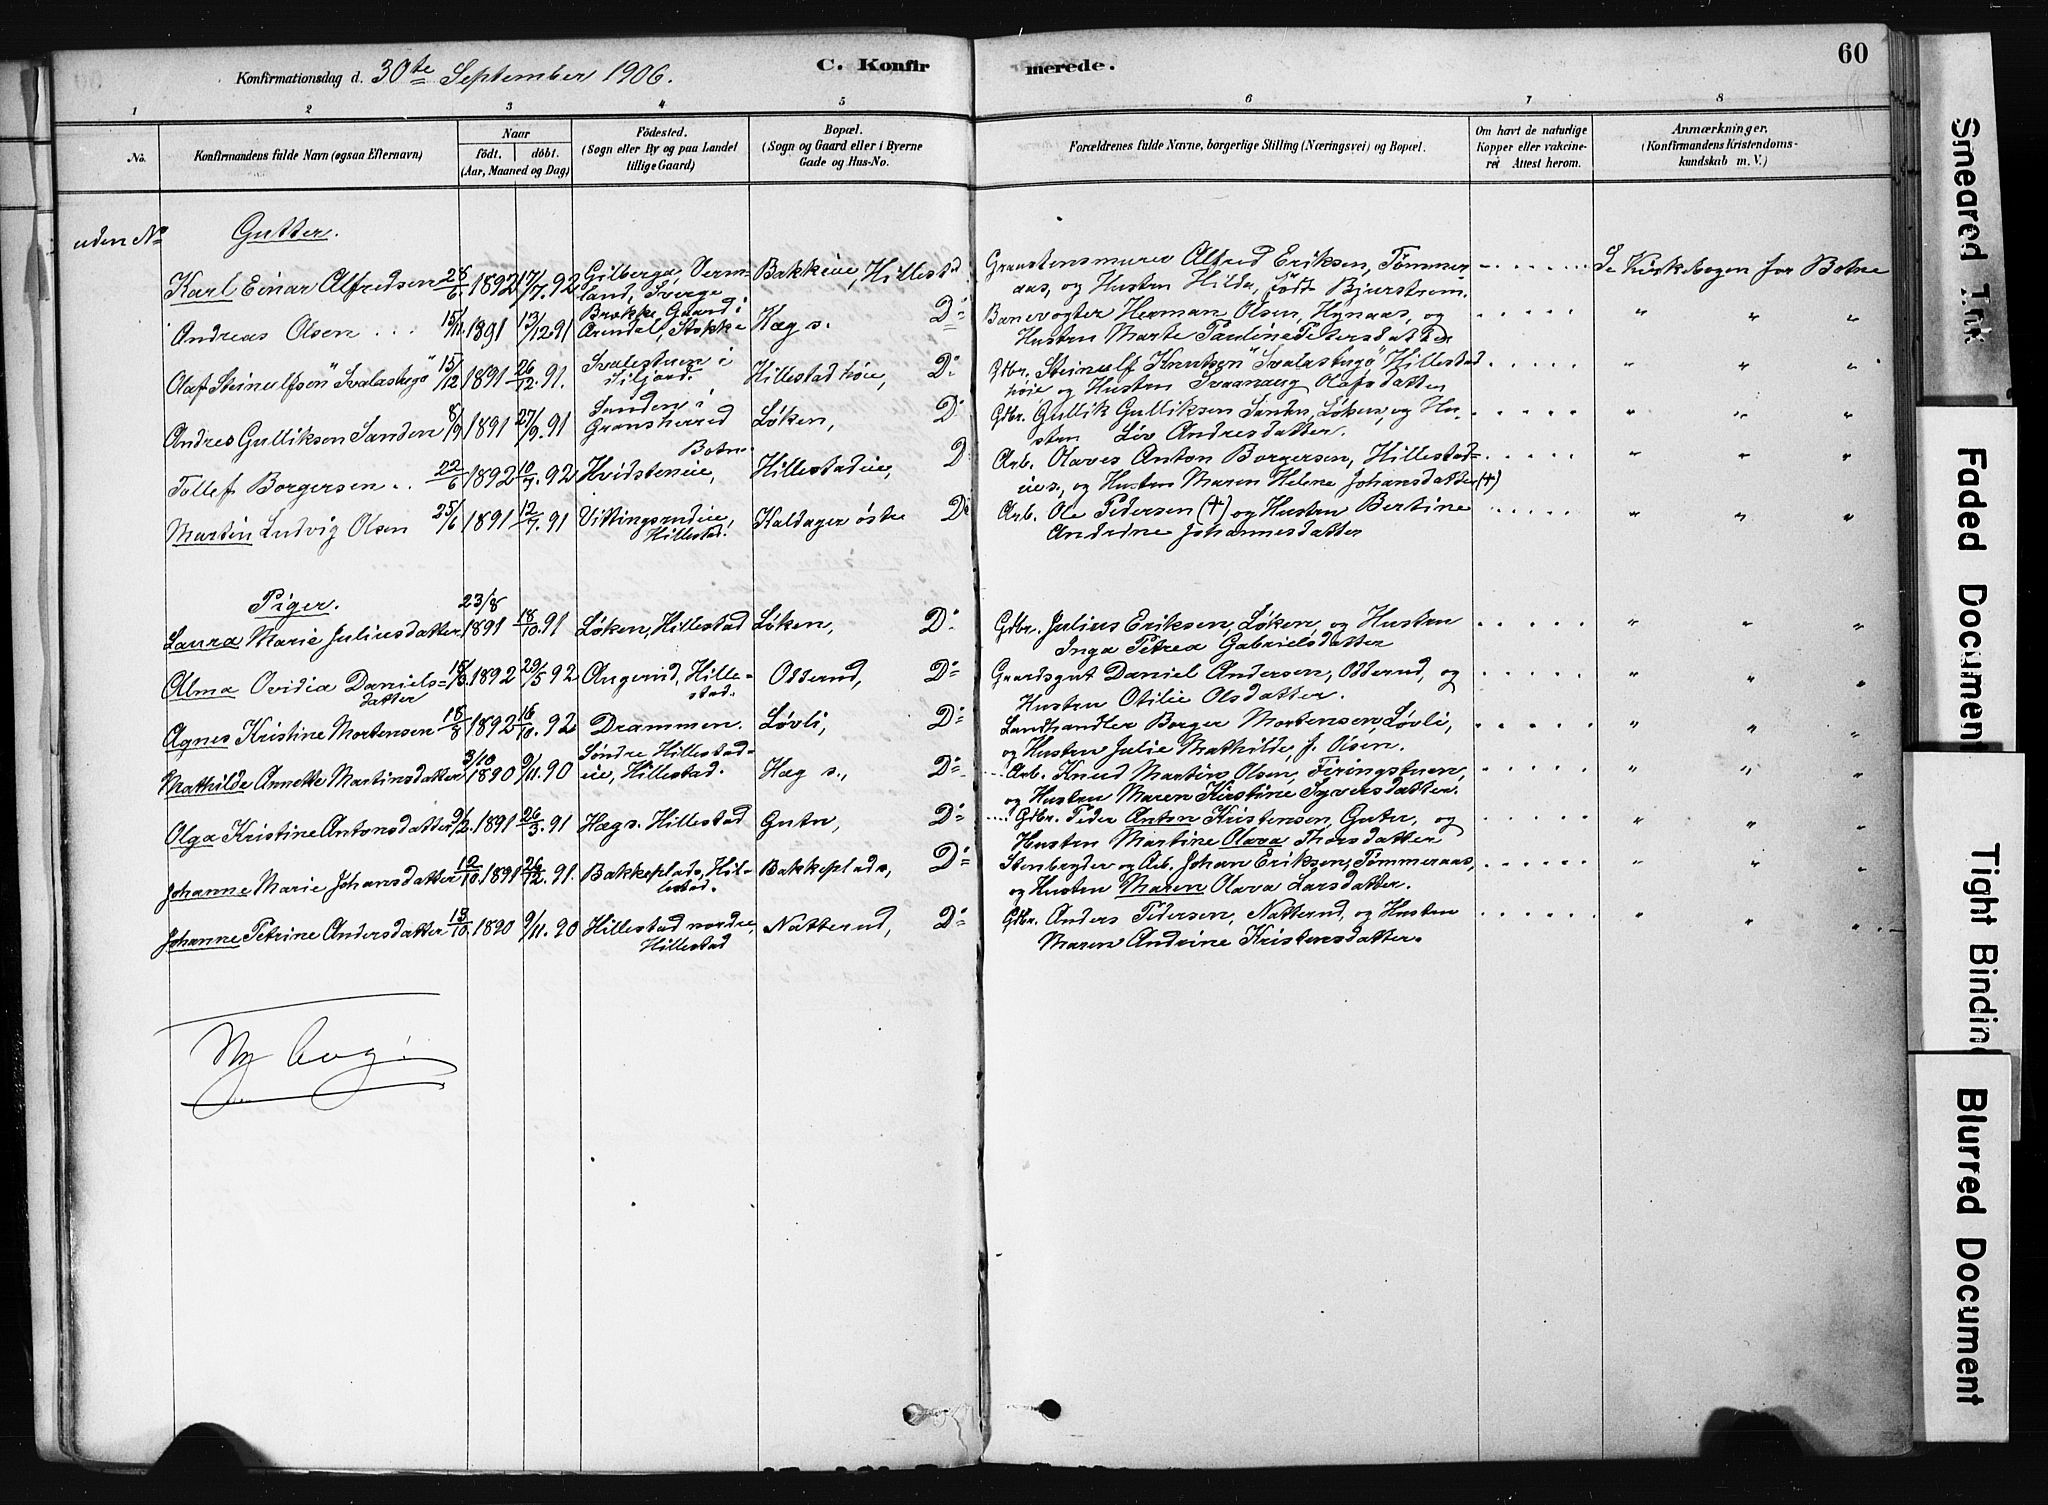 Konfirmationsdag d. 30te September 1906.
C. Konfirmerede.
60
1 2 3 4 5 6 7 8
No.
Konfirmandens fulde Navn (ogsaa Efternavn)
Naar
født. døbt.
(Aar, Maaned og Dag)
Fødested.
(Sogn eller By og paa Landet tillige Gaard)
Bopæl.
(Sogn og Gaard eller i Byerne Gade og Hus-No.
Forældrenes fulde Navne, borgerlige Stilling (Næringsvei) og Bopæl.
Om havt de naturlige Kopper eller vakcineret Attest herom.
Anmærkninger.
(Konfirmandens Kristendomskundskab m. V.)
uden No
Gutter.
Karl Einar Alfredsen 28/6 1892 17/7. 92 Gilberga, Vermland, Sverge Bakkeie, Hillestad Granstensmurer Alfred Eriksen, Tømmeraas, og Hustru Hilda, født Bjurstrøm. Se Kirkebogen for Botne
Andreas Olsen 15/11. 1891 13/12 91 Brække, Gaard i Arendal, Stokke Hæg s. Do Banevogter Herman Olsen, Hynaas, og Hustru Marte Pauline Petersdatter " " "
Olaf Steinulfsen "Svalastugø" 15/12 1891 26/12. 91. Svalestuen i Siljord. Hillestad høie, Do Gdbr. Steinulf Knutsen "Svalastugø" Hillestad høie og Hustru Svanaug Olafsdatter " " "
Andres Gulliksen Sanden 8/9 1891 27/9. 91 Sanden i Gransherred Løken, Do Gdbr. Gullik Gulliksen Sanden, Løken, og Hustru Liv Andresdatter. " " "
Tollef Borgersen 22/6 1892 10/7. 92 Hvidsteneie, Botne Hillestadeie, Do Arb. Olaves Anton Borgersen, Hillestadeie, og Hustru Maren Helene Johansdatter (+) " " "
Martin Ludvig Olsen 25/6 1891 12/7. 91 Vittingsrudeie, Hillestad. Kaldager østre Do Arb. Ole Pedersen (+) og Hustru Bertine Andrine Johannesdatter " " "
Piger.
Laura Marie Juliusdatter 23/8 1891 18/10. 91 Løken, Hillestad Løken, Do Gdbr. Julius Eriksen, Løken, og Hustru Inga Petrea Gabrielsdatter " " "
Alma Ovidia Danielsdatter 1892 29/5 92 Angerud, Hillestad. Odderud, Do Gaardsgut Daniel Andersen, Odderud, og Hustru Otilie Olsdatter. " " "
Agnes Kristine Mortensen 18/8 1892 16/10. 92 Drammen. Løvli, Do Landhandler Borger Mortensen, Løvli, og Hustru Julie Mathilde, f. Olsen. " " "
Mathilde Annette Martinsdatter 3/10 1890 9/11. 90 Søndre Hillestadeie, Hillestad. Hæg s., Do Arb. Knud Martin Olsen, Firingstuen, og Hustru Maren Kirstine Syversdatter. " " "
Olga Kristine Antonsdatter 9/2. 1891 26/3. 91 Hæg s. Hillestad Gutu, Do Gdbr. Peder Anton Kristensen, Gutu, og Hustru Martine Olava Thorsdatter " " "
Johanne Marie Johansdatter 12/10. 1891 26/12. 91. Bakkeplads, Hillestad. Bakkeplads, Do Stenbryder og Arb. Johan Eriksen, Tømmeraas, og Hustru Maren Olava Larsdatter. " " "
Johanne Petrine Andersdatter 13/10. 1890 9/11. 90 Hillestad nordre, Hillestad Natterud, Do Gdbr. Anders Pedersen, Natterud, og Hustru Maren Andrine Kristensdatter. " " "
Ny bog!
Smeared Ink
Faded Document
Tight Binding
Blurred Document